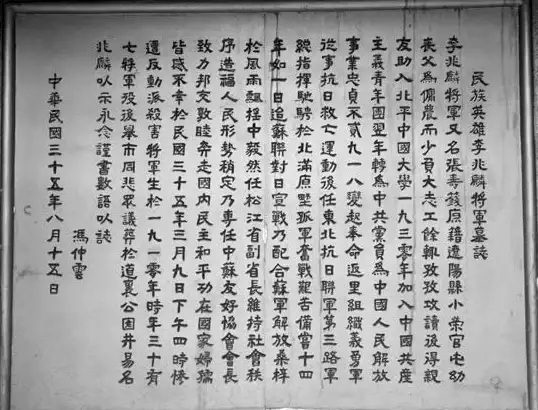 民族英雄李兆麟將軍墓誌
李兆麟將軍又名張壽籛原籍遼陽縣小榮官屯幼
喪父為傭農而少負大志工餘輒孜孜攻讀後得親
友助入北平中國大學一九三零年加入中國共產
主義青年團翌年轉為中共黨員為中國人民解放
事業忠貞不貳九一八變起奉命返里組織義勇軍
從事抗日救亡運動後任東北抗日聯軍第三路軍
總指揮馳騁於北滿原野孤軍奮戰艱苦備嘗十四
年如一日追蘇聯對日宣戰乃配合蘇軍解放桑梓
於風雨飄搖中毅然任松江省副省長維持社會秩
序造福人民形勢稍定乃專任中蘇友好協會會長
致力邦交敦睦奔走國內民主和平功在國家婦孺
皆感不幸於民國三十五年三月九日下午四時慘
遭反動派殺害將軍生於一九一零年時年三十有
七將軍歿後舉市同悲眾議葬於道裏公園并易名
兆麟以示永念謹書數語以誌
馮仲雲
中華民國三十五年八月十五日